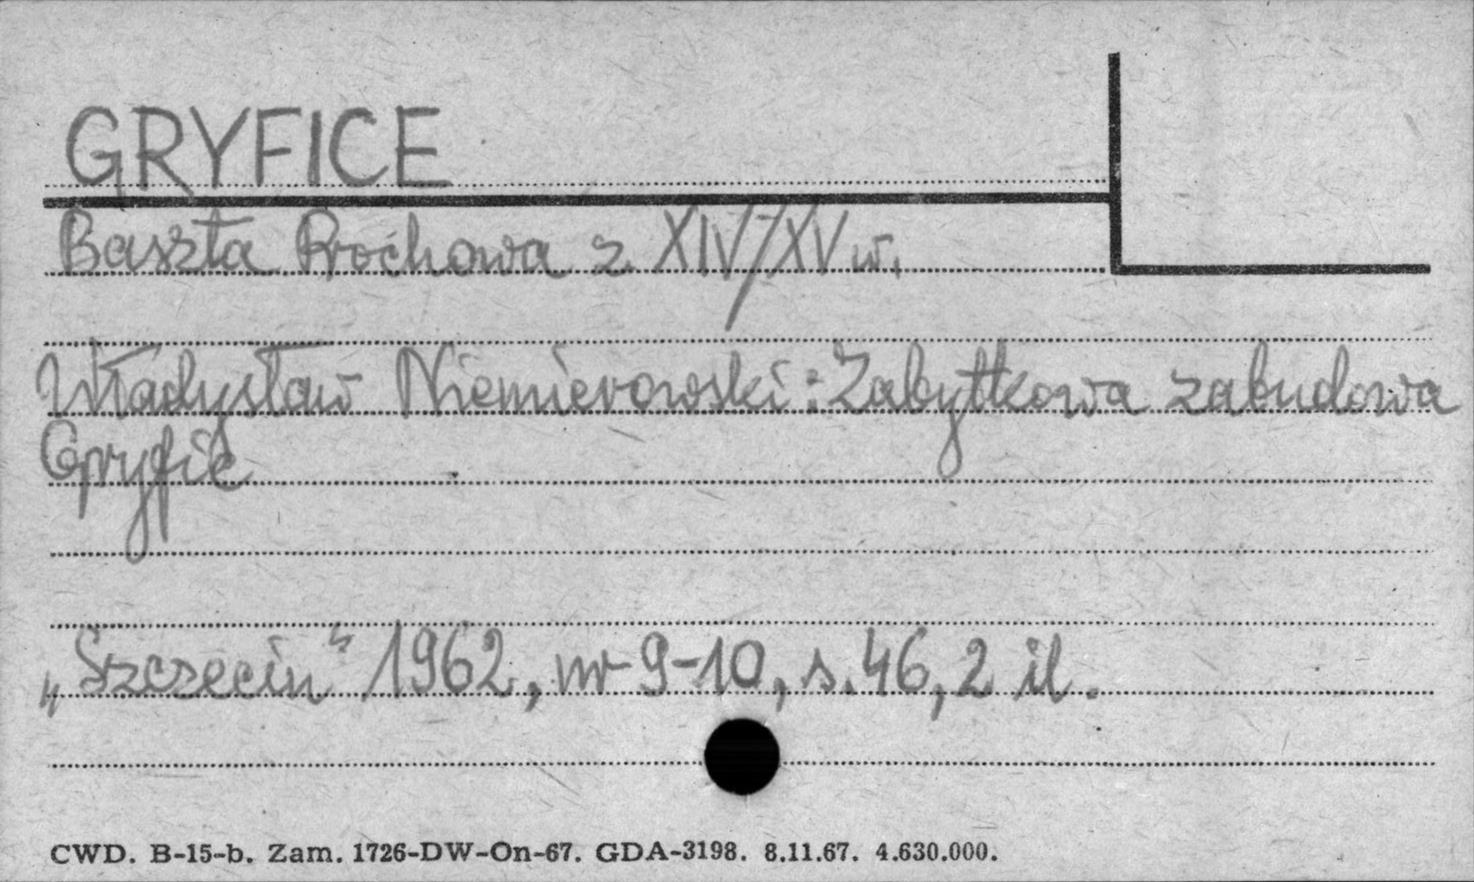 GRYFICE
Baszta Prochowa z XIV/XV w.
Władysław Niemierowski: Zabytkowa zabudowa
Gryfic
„Szczecin" 1962, nr 9-10, s. 46, 2 il.
CWD. B-15-b. Zam. 1726-DW-On-67. GDA-3198. 8.11.67. 4.630.000.